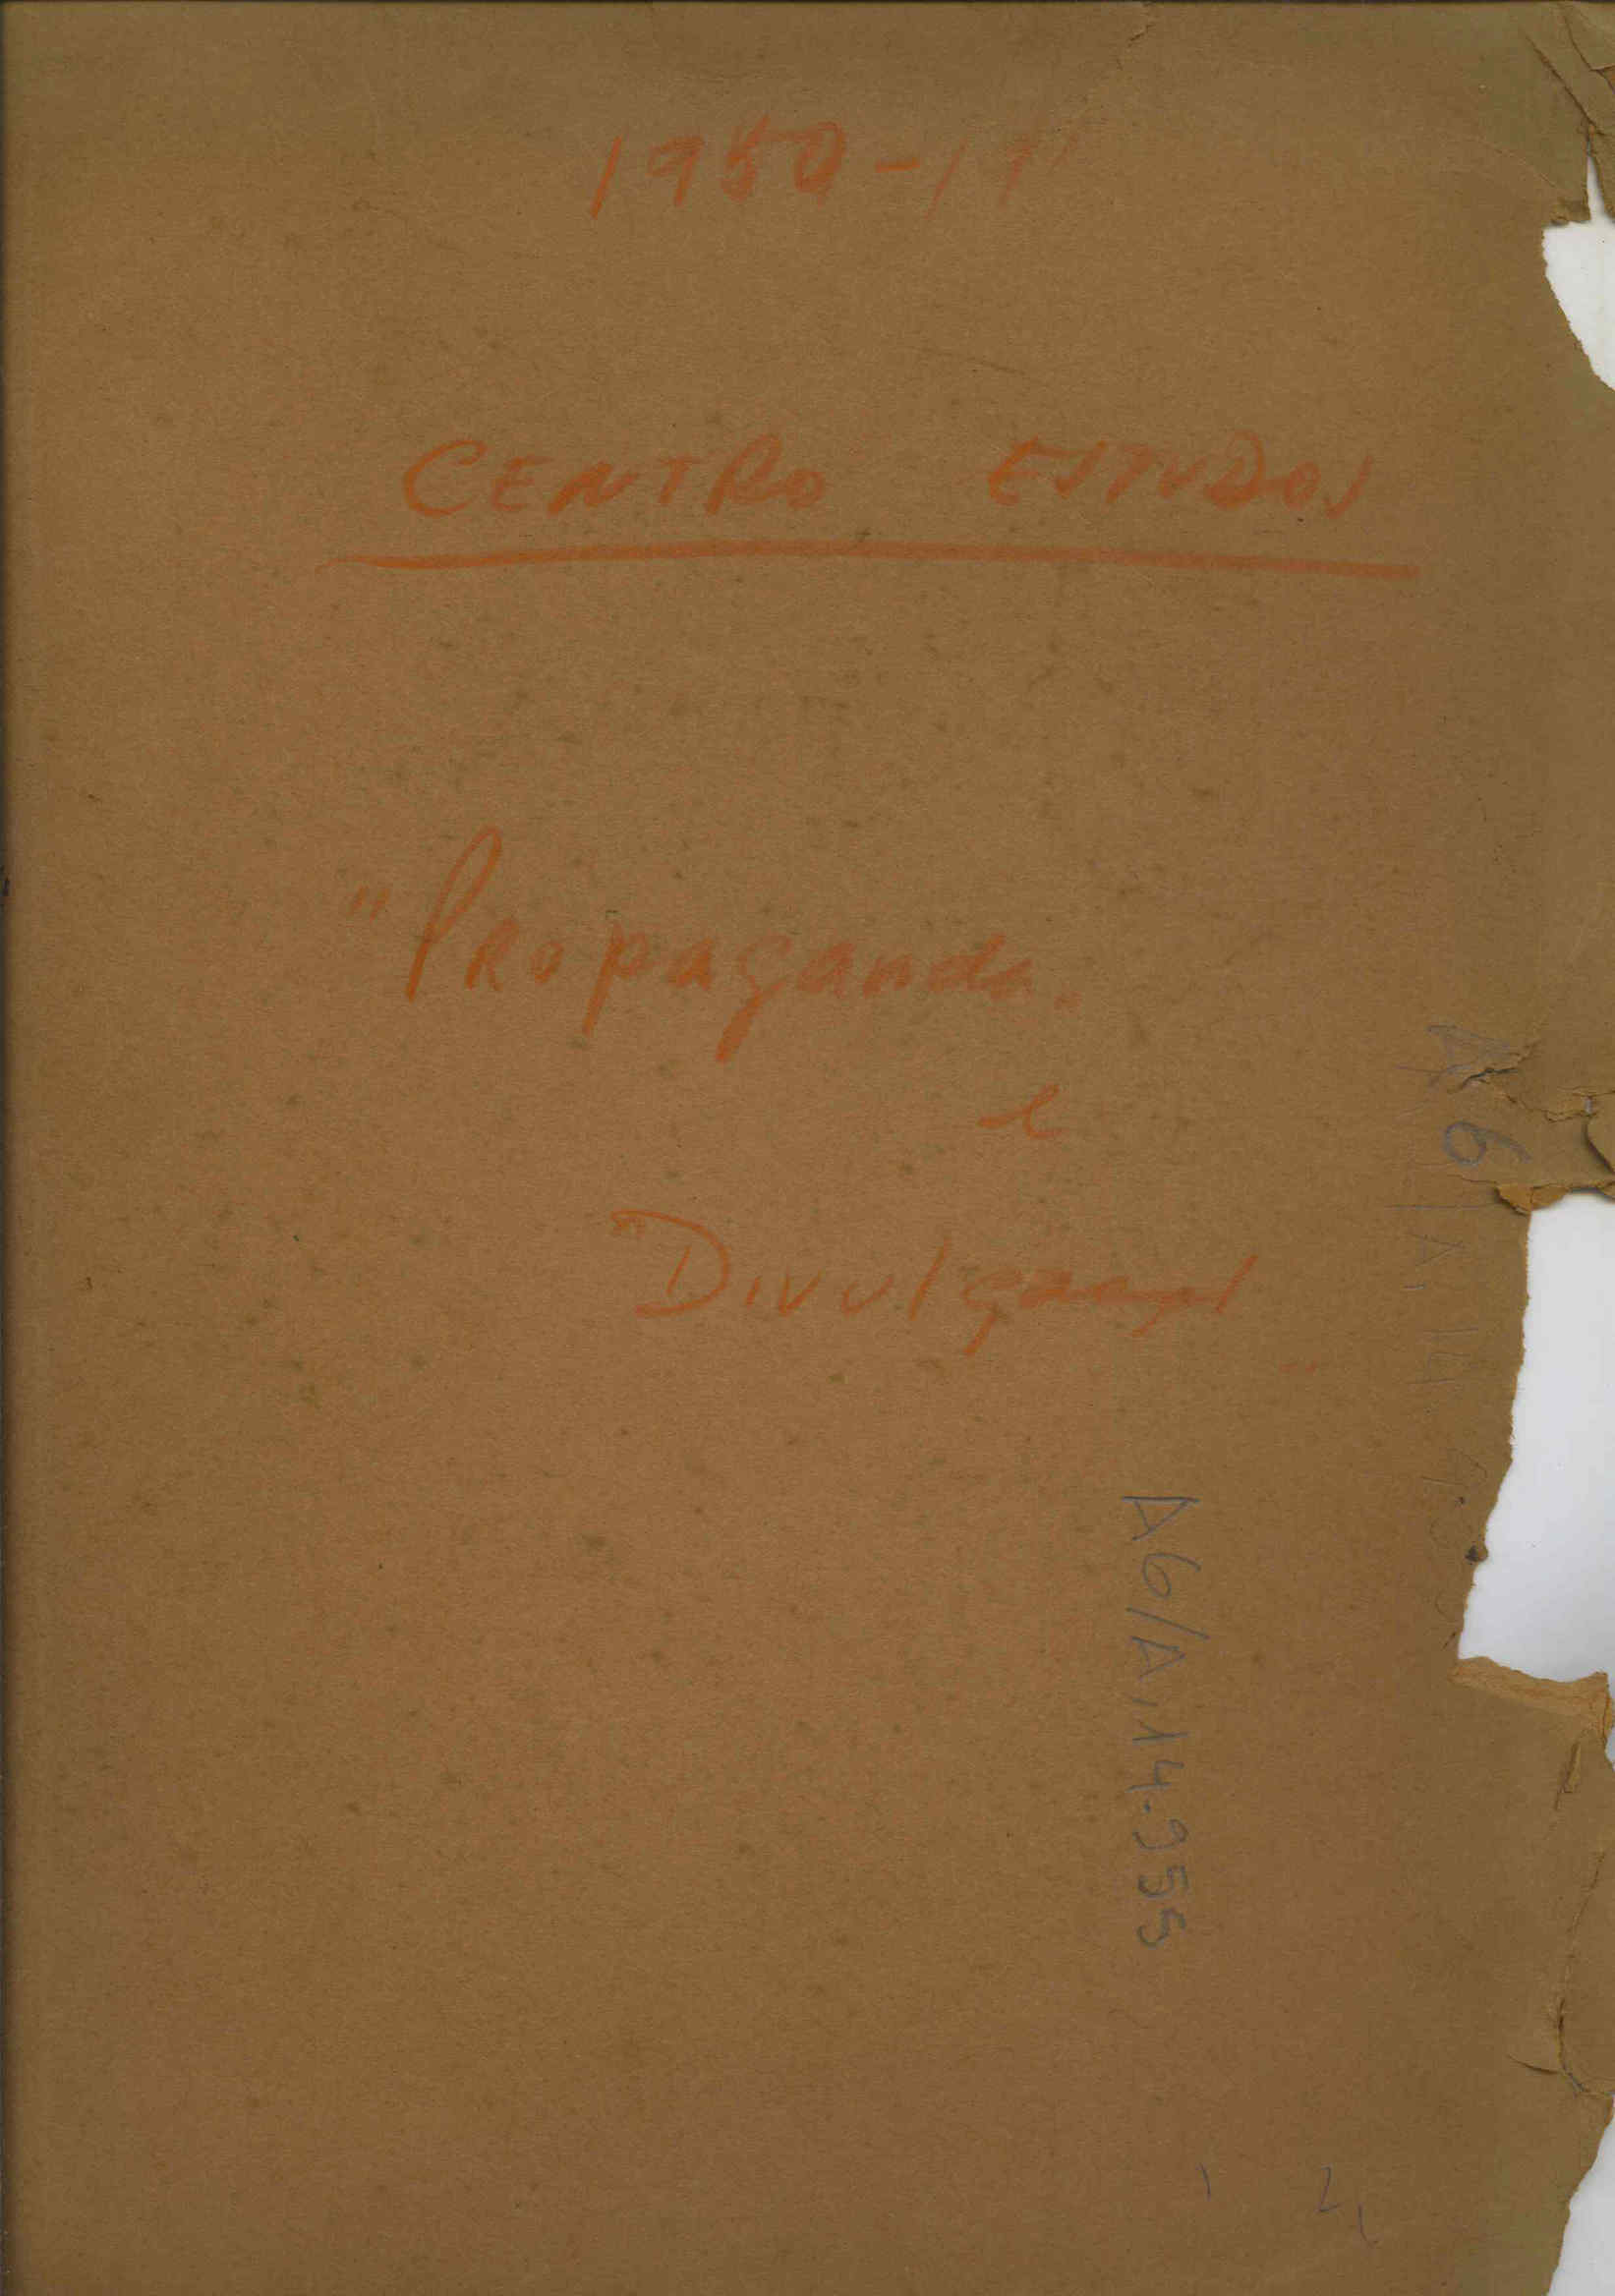 1950-19
CENTRO ESTUDOS
"Propaganda.
e
"Divulgaçao"
A6/A.14.955